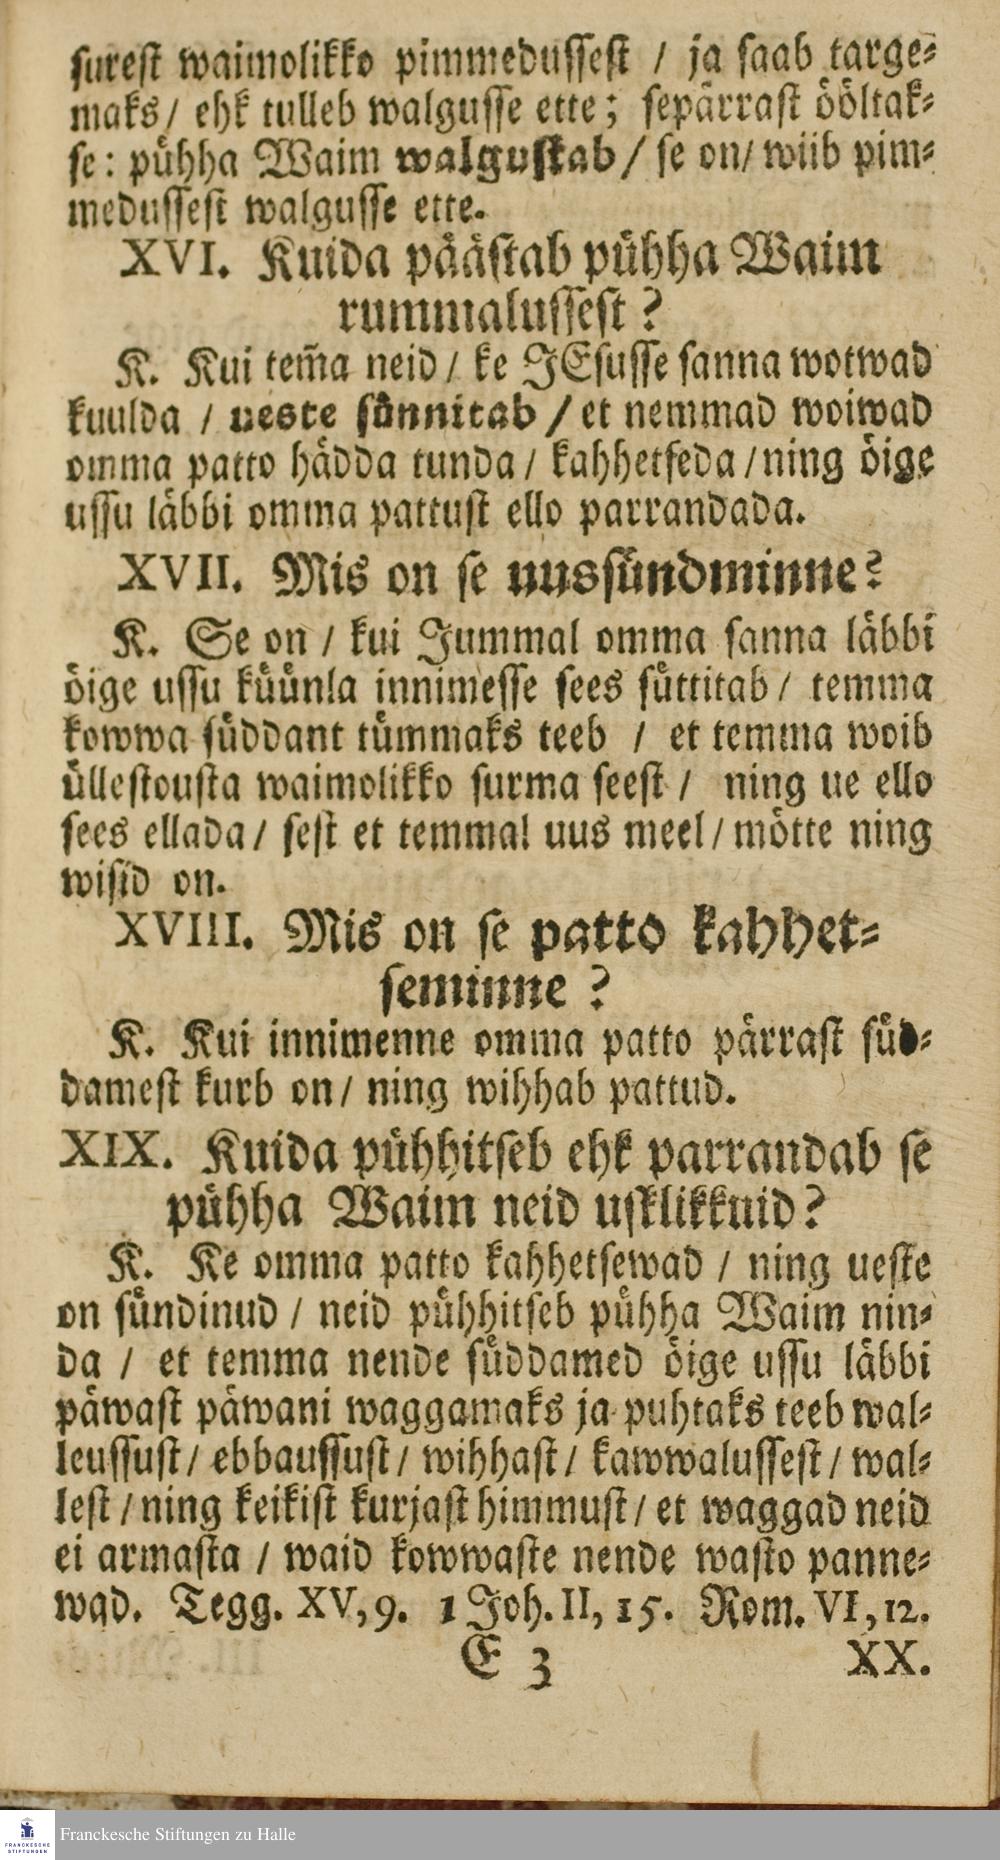 surest waimolikko pimmedussest / ja saab targe⸗
maks / ehk tulleb walgusse ette; sepärrast öölͤtak⸗
se: pühha Waim walgustab / se on / wiib pim⸗
medussest walgusse ette.
XVI. Kuida päästab pühha Waim
rummalussest?
K. Kui tem̃a neid / ke JEsusse sanna wotwad
kuulda / ueste sünnitab / et nemmad woiwad
omma patto hädda tunda / kahhetseda / ning öige
ussu läbbi omma pattust ello parrandada.
XVII. Mis on se uussündminne?
K. Se on / kui Jummal omma sanna läbbi
öige ussu küünla innimesse sees süttitab / temma
kowwa süddant tümmaks teeb / et temma woib
üllestousta waimolikko surma seest / ning ue ello
sees ellada / sest et temmal uus meel / mötte ning
wisid on.
XVIII. Mis on se patto kahhet⸗
seminne?
K. Kui innimenne omma patto pärrast süd⸗
damest kurb on / ning wihhab pattud.
XIX. Kuida pühhitseb ehk parrandab se
pühha Waim neid usklikkuid?
K. Ke omma patto kahhetsewad / ning ueste
on sündinud / neid pühhitseb pühha Waim nin⸗
da / et temma nende süddamed öige ussu läbbi
päwast päwani waggamaks ja puhtaks teeb wal⸗
leussust / ebbaussust / wihhast / kawwalussest / wal⸗
lest / ning keikist kurjast himmust / et waggad neid
ei armasta / waid kowwaste nende wasto panne⸗
wad. Tegg. XV, 9. 1 Joh. II, 15. Rom. VI, 12.
E 3 XX.
FRANCKESCHE
STIFTUNGEN
Franckesche Stiftungen zu Halle